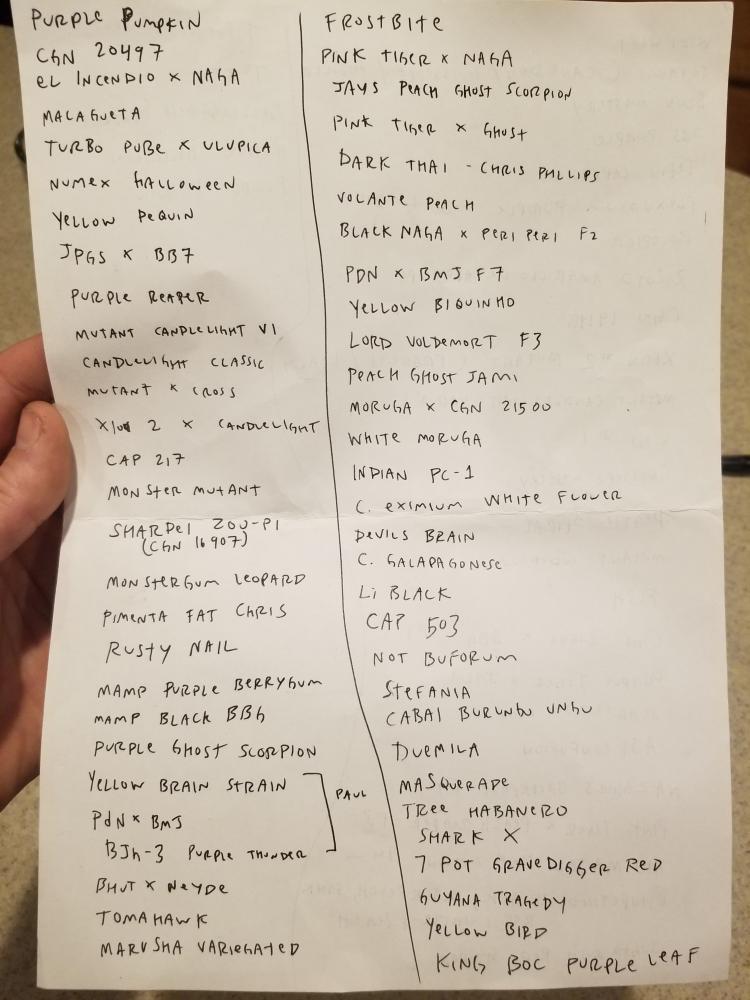 PURPLE PUMPKIN
CGN 20497
EL INCENDIO x NAGA
MALAGUETA
TURBO PUBE x ULUPICA
NUMEX HALLOWEEN
YELLOW PEQUIN
JPGS x BB7
PURPLE REAPER
MUTANT CANDLELIGHT V1
CANDLELIGHT CLASSIC
MUTANT x CROSS
2 x CANDLELIGHT
CAP 217
MONSTER MUTANT
SHARPEI ZOU-PI
(CGN 16907)
MONSTERGUM LEOPARD
PIMENTA FAT CHRIS
RUSTY NAIL
MAMP PURPLE BERRYGUM
MAMP BLACK BBG
PURPLE GHOST SCORPION
YELLOW BRAIN STRAIN
PDN x BMJ
PAUL
BJG-3 PURPLE THUNDER
BHUT x NEYDE
TOMAHAWK
MARUSHA VARIEGATED
FROSTBITE
PINK TIGER x NAGA
JAYS PEACH GHOST SCORPION
PINK TIGER x GHOST
DARK THAI - CHRIS PHLLIPS
VOLANTE PEACH
BLACK NAGA x PERI PERI F2
PDN x BMJ F7
YELLOW BIQUINHO
LORD VOLDEMORT F3
PEACH GHOST JAMI
MORUGA x CGN 21500
WHITE MORUGA
INDIAN PC-1
C. EXIMIUM WHITE FLOWER
DEVILS BRAIN
C. GALAPAGONESE
LI BLACK
CAP 503
NOT BUFORUM
STEFANIA
CABAI BURUNGU UNGU
DUEMILA
MASQUERADE
TREE HABANERO
SHARK X
7 POT GRAVEDIGGER RED
GUYANA TRAGEDY
YELLOW BIRD
KING BOC PURPLE LEAF